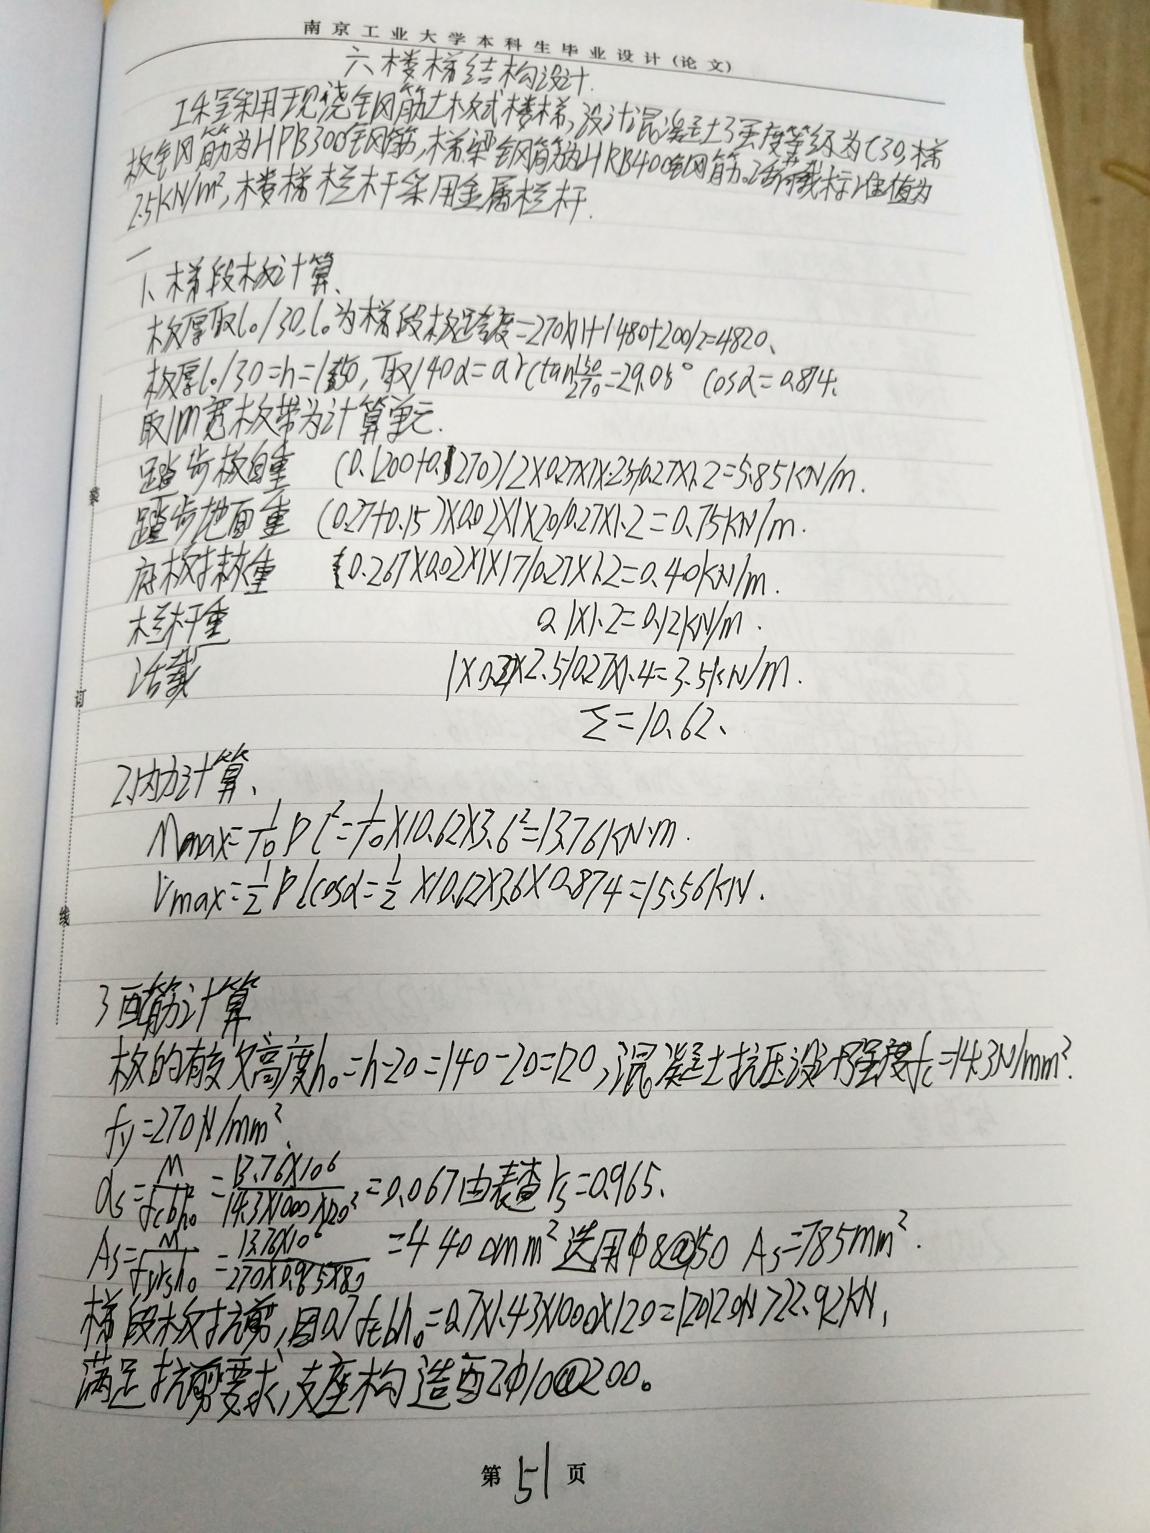 南京工业大学本科生毕业设计(论文)
六 楼梯结构设计.
工程采用现浇钢筋土板式楼梯,设计混凝土强度等级为C30,梯
板钢筋为HPB300钢筋,梯梁钢筋为HRB400钢筋.活荷载标准值为
2.5KN/m²,楼梯栏杆采用金属栏杆.
一
1、梯段板计算、
板厚取l₀/30,l₀为梯段板跨度=270X11+1480+200/2=4820、
板厚l₀/30=h= 取140α=arctan150/270=29.05° cosα=0.874、
取1m宽板带为计算单元.
踏步板自重 (0.1200+0.1270)/2X0.27X1X25/0.27X1.2=5.85KN/m.
踏步地面重 (0.27+0.15)X0.02X1X20/0.27X1.2=0.75KN/m.
底板抹灰重 0.267X0.02X1X17/0.27X1.2=0.40KN/m.
栏杆重 0.1X1.2=0.12KN/m.
活载 1X0.27X2.5/0.27X1.4=3.5KN/m.
Σ=10.62、
2,内力计算、
Mmax=1/10Pl²=1/10X10.62X3.6²=13.76KN·m.
Vmax=1/2Plcosα=1/2X10.62X3.6X0.874=15.56KN.
3 配筋计算
板的有效高度h₀=h-20=140-20=120,混凝土抗压设计强度fc=14.3N/mm².
fy=270N/mm².
αs=M/fcbh₀²=13.76X10⁶/14.3X1000X120²=0.067由表查rs=0.965、
As=M/fyrsh₀=13.76X10⁶/270X0.965X80=440.0mm²选用Φ8@150 As=785mm².
梯段板抗剪,因0.7ftbh₀=0.7X1.43X1000X120=120120N>22.92KN,
满足抗剪要求,支座构造配2Φ10@200。
装
订
线
第51页